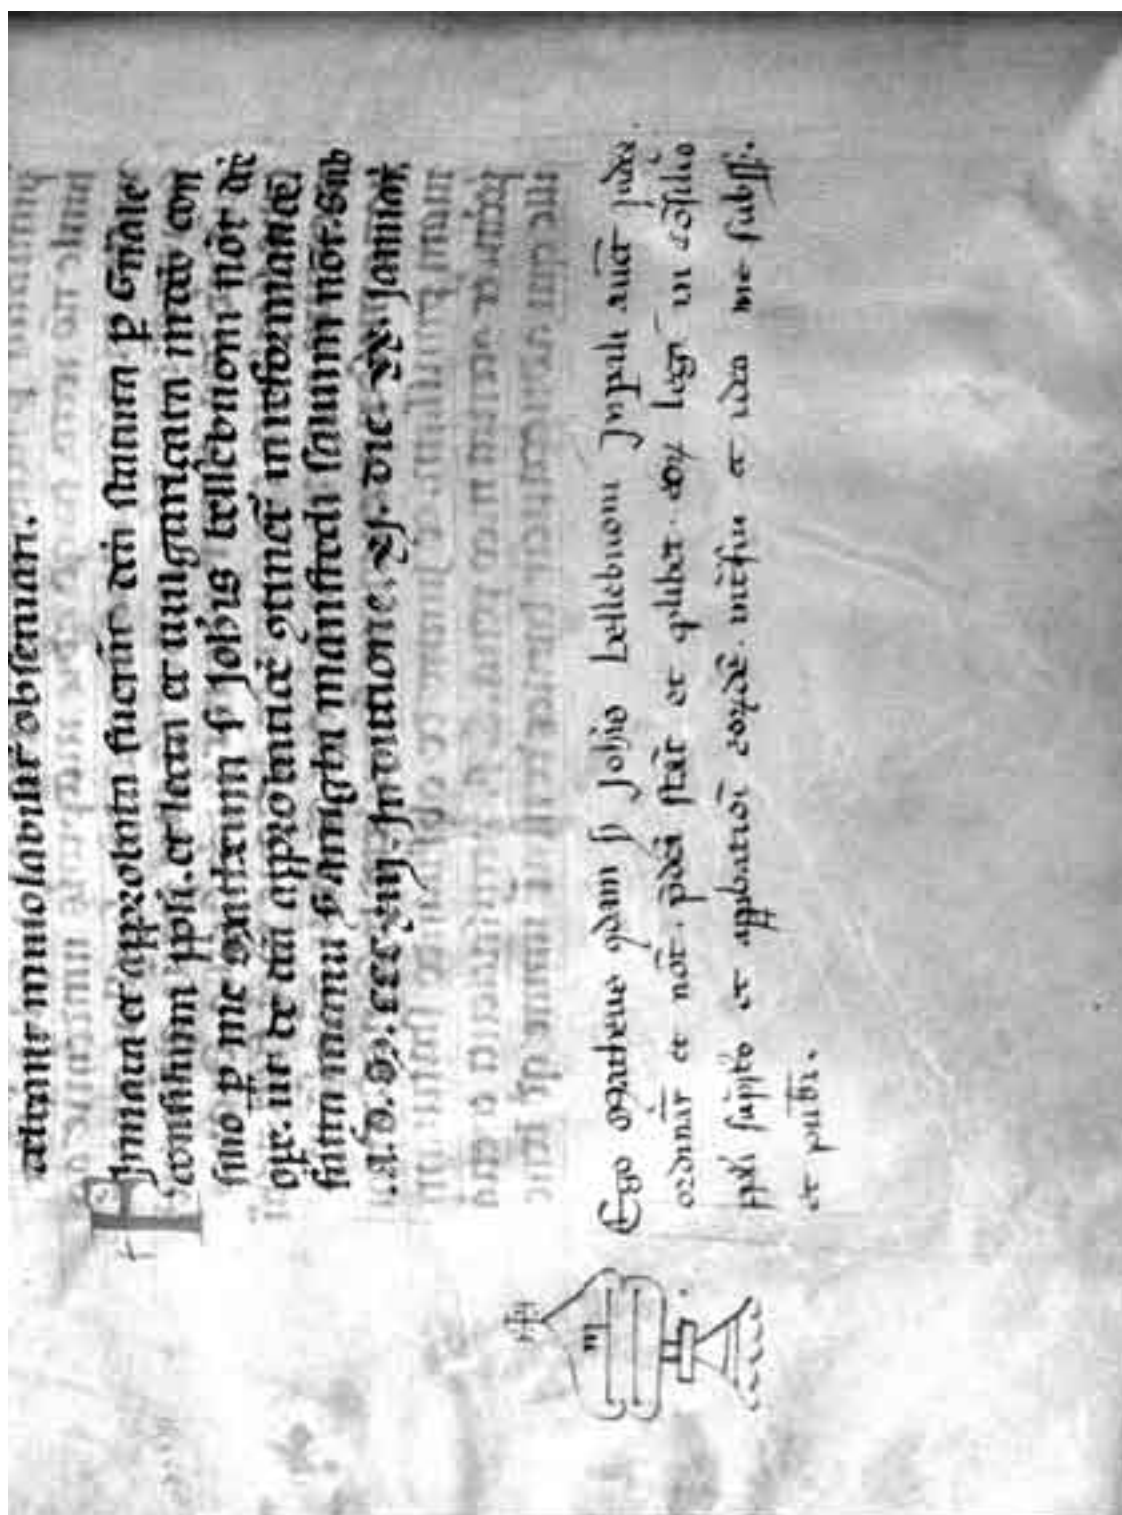 actant inviolabilit obseruari.
Firmata et approbata fuerūt dcā statuta p Gn̄ale
consilium ppli. et lecta et uulgariçata in dcō con
silio p me Matheum s̄ Joh̄is bellebuoni not̄
ut de dcā approbatiōe ɔtinet̄
sc̄ptū manu s̄ Arrigh̄i Manfredi not̄. Sub
A. D. M. CCC xiij Indictione. xj. die xx Januar̄.
Ego Matheus qdam s̄ Joh̄is bellebuoni Inpiali auct̄ Judex
ordinar̄ et not̄. p̄dc̄i stat̄ et qlibet eoꝝ legi in cōsilio
ppl̄i sup̄dcō et approbatiōi eoꝝdē int̄fui et ideo me subss̄.
et publ̄i.
m